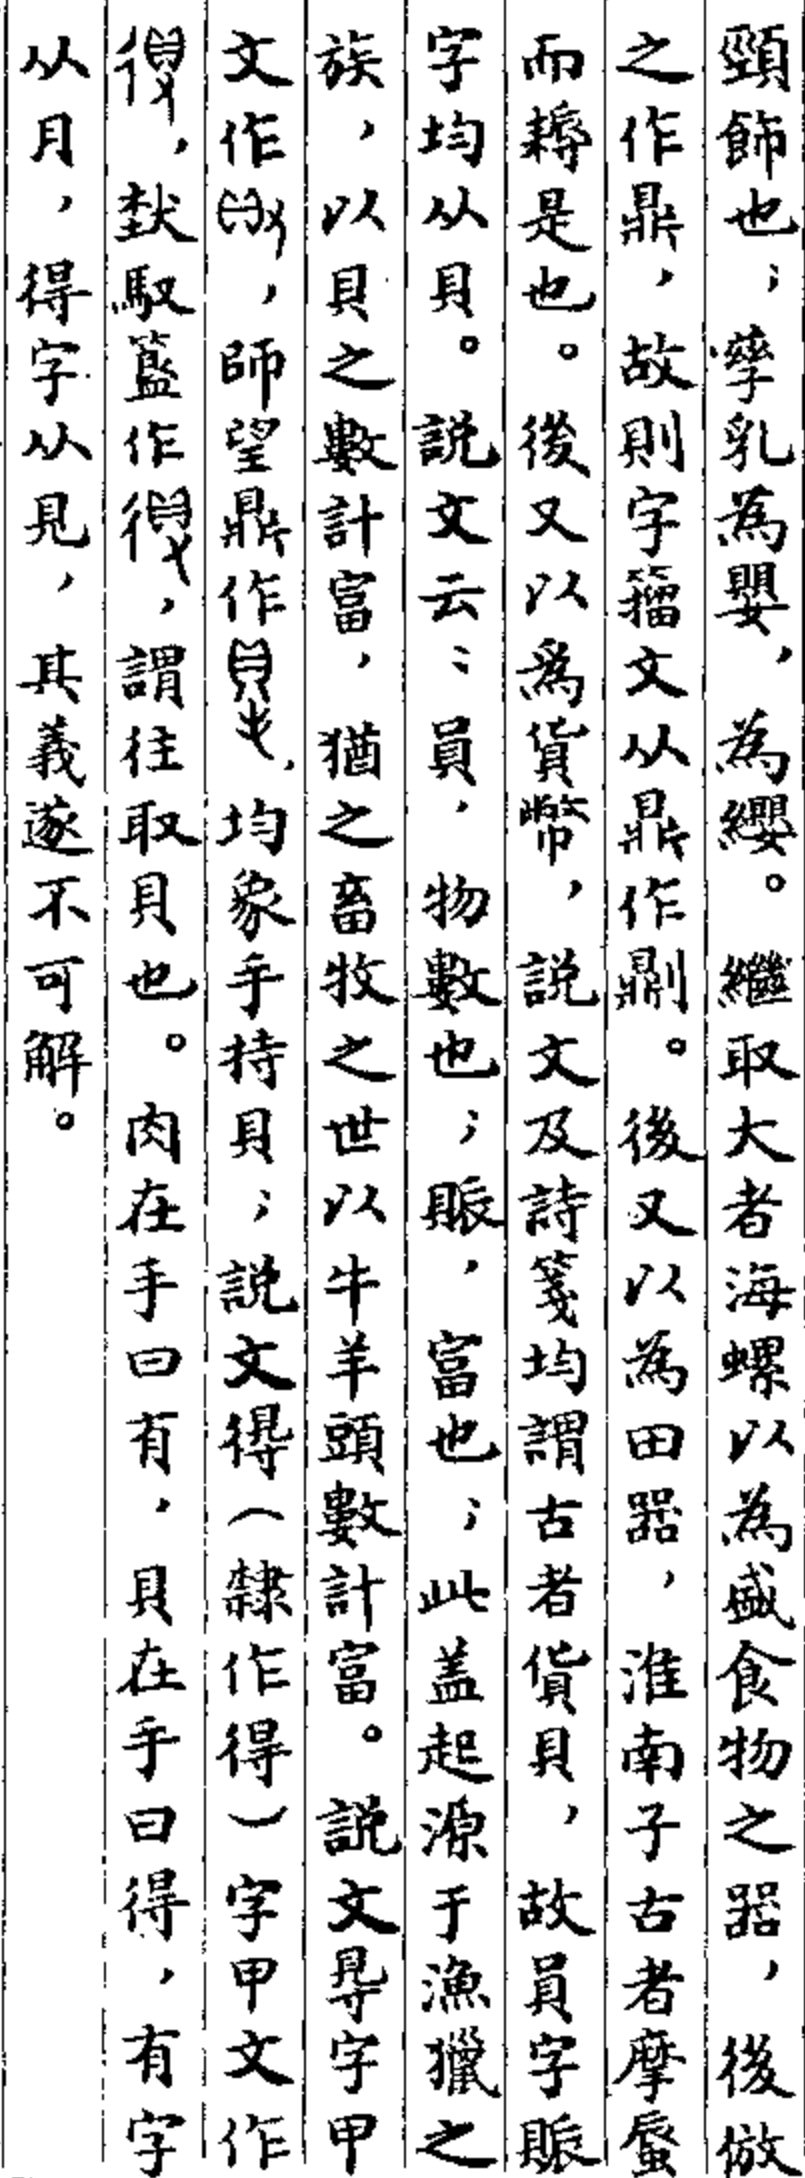 頸飾也；孳乳為嬰，為纓。繼取大者海螺以為盛食物之器，後倣
之作鼎，故則字籀文从鼎作鼎刂。後又以為田器，淮南子古者摩蜃
而耨是也。後又以爲貨幣，説文及詩箋均謂古者貨貝，故員字賑
字均从貝。説文云：員，物數也；賑，富也；此盖起源于漁獵之
族，以貝之數計富，猶之畜牧之世以牛羊頭數計富。説文㝵字甲
文作，師望鼎作，均象手持貝；説文得（隸作得）字甲文作
，㝬馭簋作，謂往取貝也。肉在手曰有，貝在手曰得，有字
从月，得字从見，其義遂不可解。